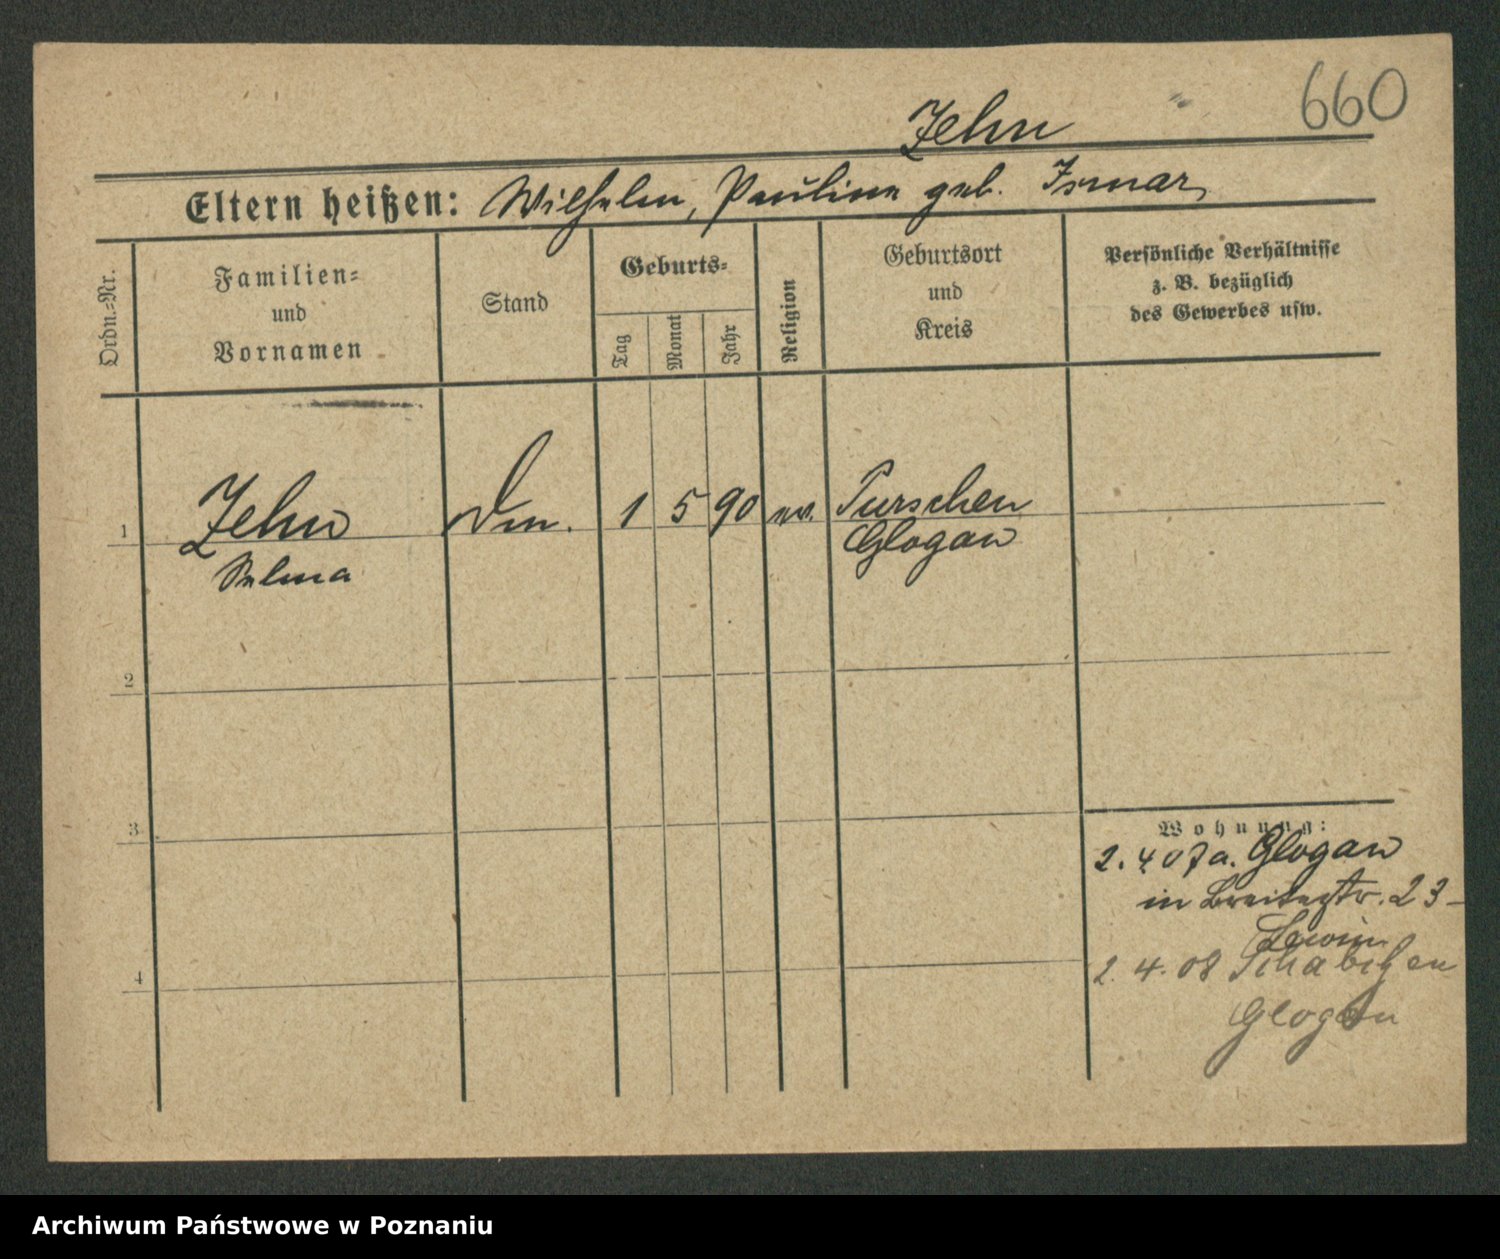 660
Zehn
Eltern heißen: Wilhelm, Pauline geb. Ismar
Ordn.-Nr.
Familien-
und
Vornamen
Stand
Geburts-
Tag
Monat
Jahr
Religion
Geburtsort
und
Kreis
Persönliche Verhältnisse
z. B. bezüglich
des Gewerbes usw.
1 Zehn Dm. 1 5 90 ev. Purschen
Selma Glogau
2
3
4
Wohnung:
2. 4 07 a. Glogau
in Breitestr. 23
Lewin
2. 4. 08 Schabitzen
Glogau
Archiwum Państwowe w Poznaniu